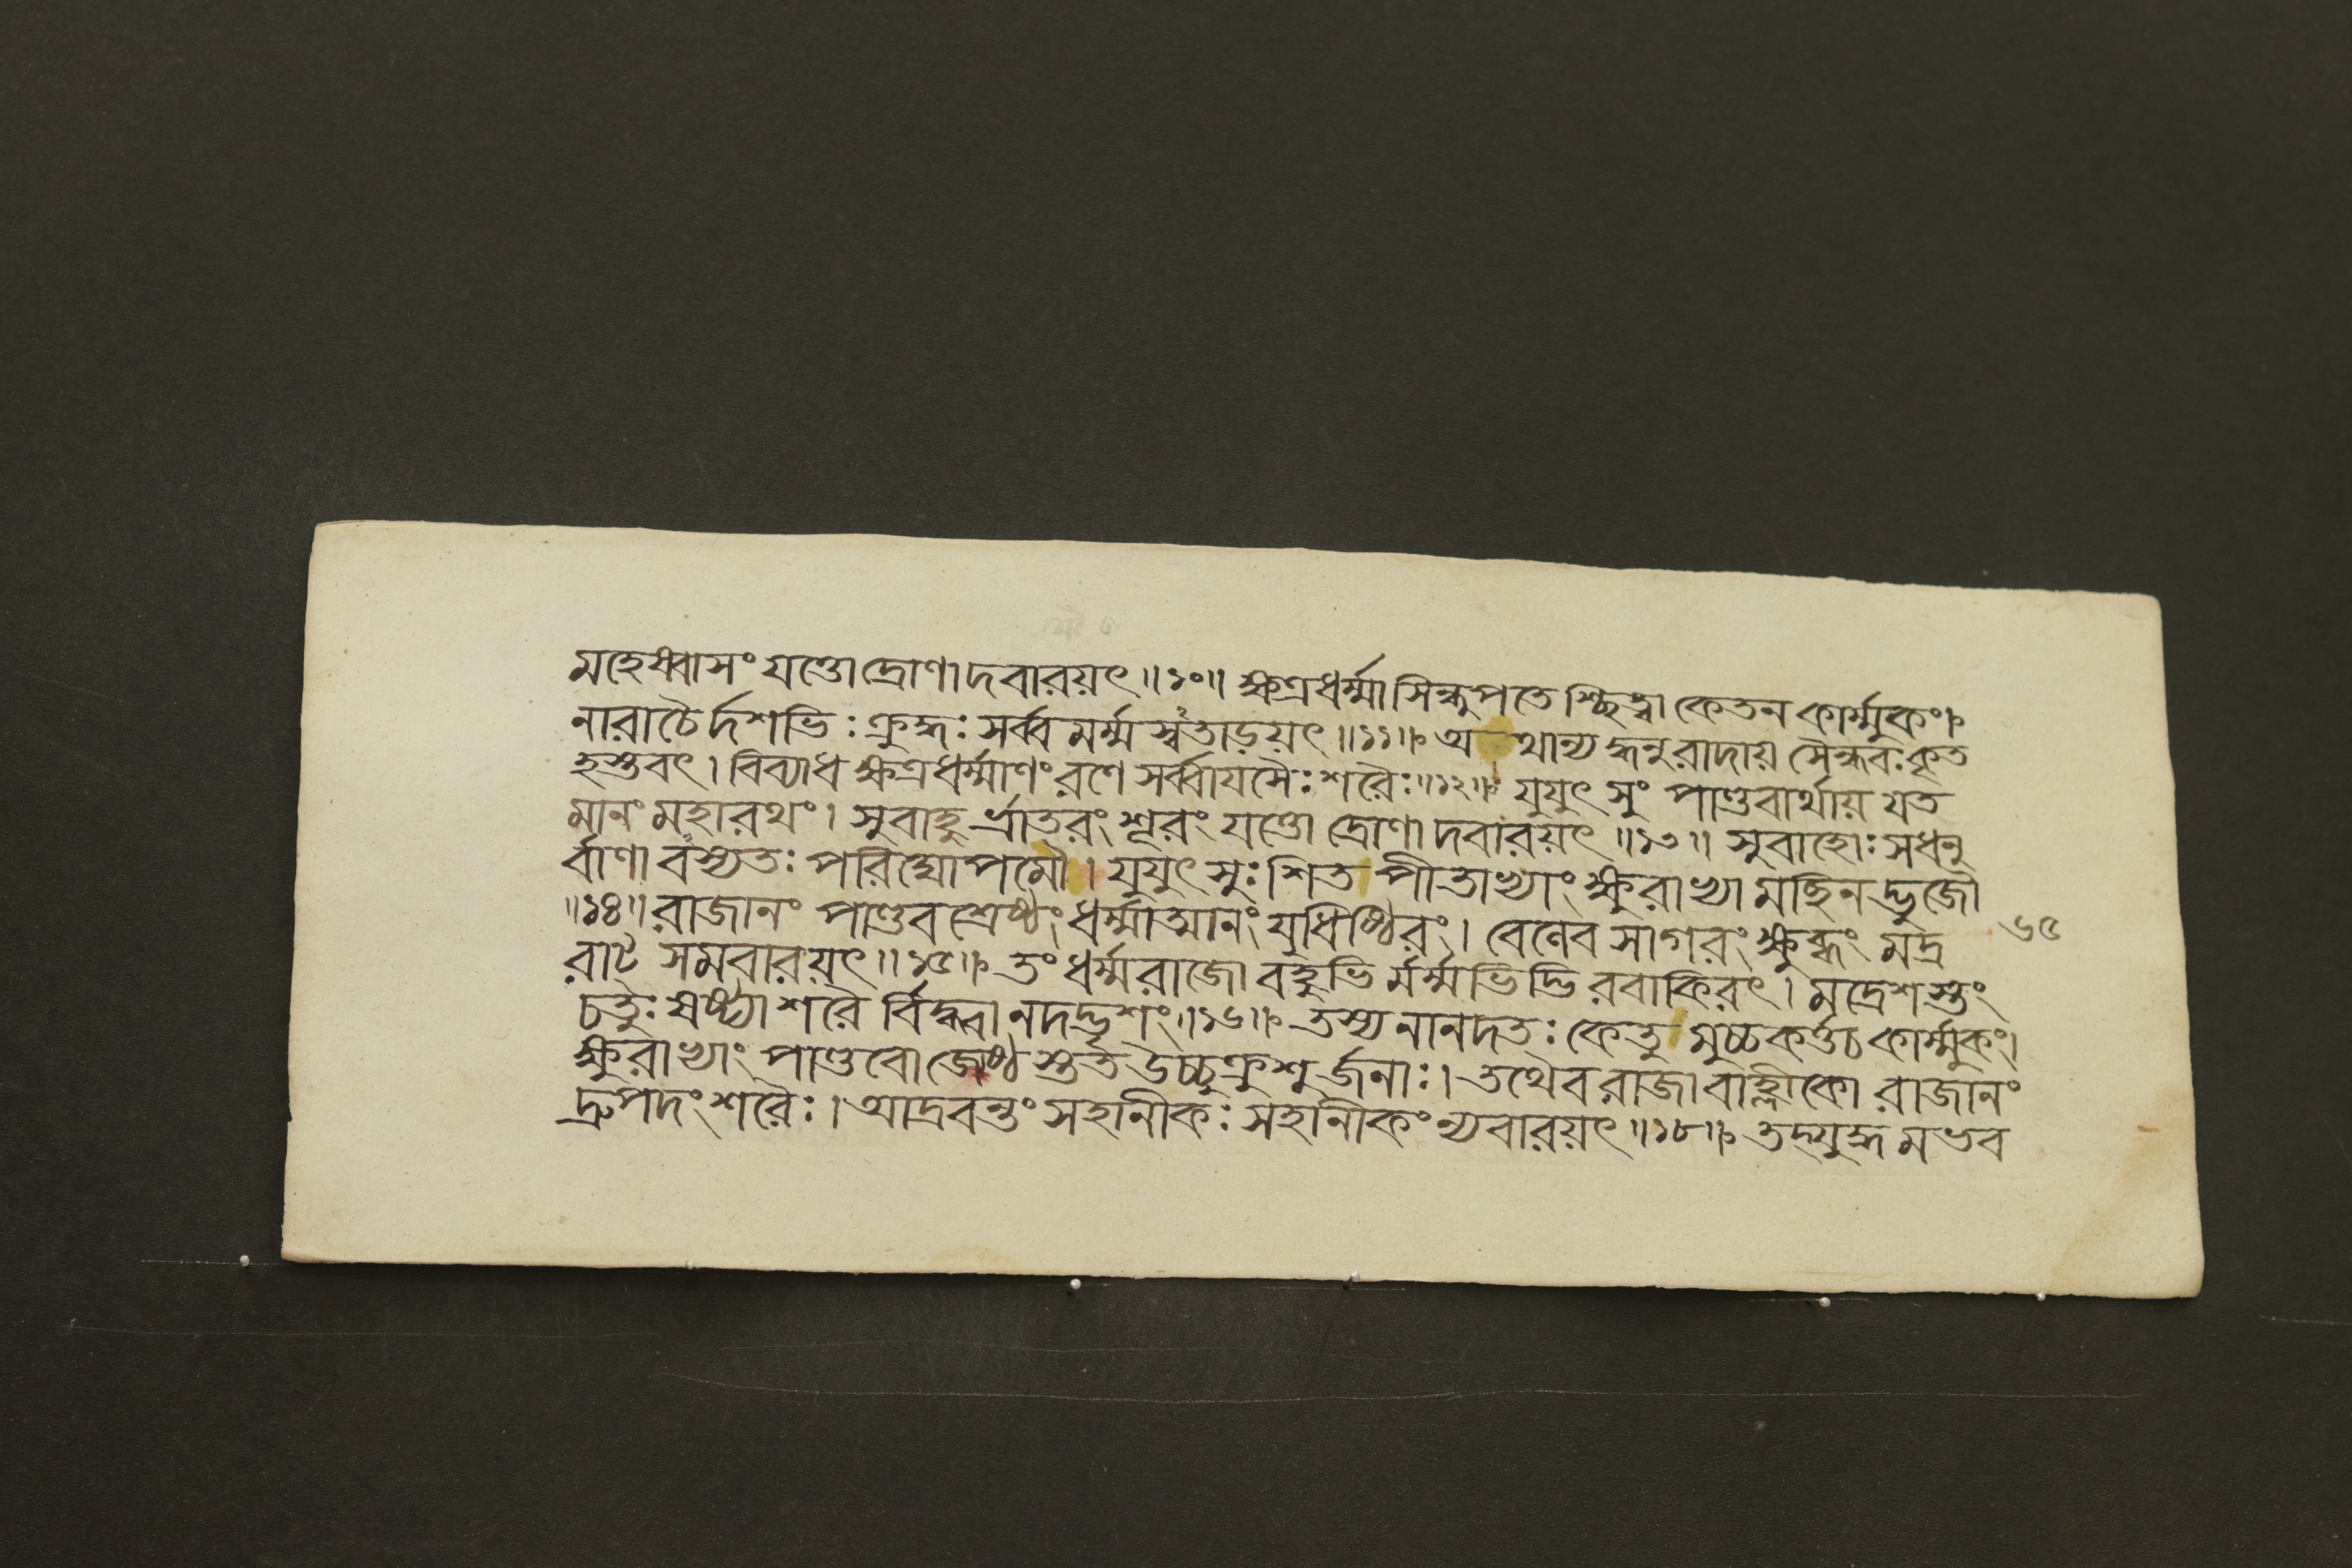 মহেষ্বাসং যত্তো দ্রোণাদবারয়ৎ॥১০॥ ক্ষত্রধর্ম্মা সিন্ধুপতেশ্ছিত্ত্বা কেতন কার্ম্মুকং।
নারাচৈর্দশভিঃ ক্রুদ্ধঃ সর্ব্বমর্ম্মস্বতাড়য়ৎ॥১১॥ অথান্যদ্ধনুরাদায় সৈন্ধবঃ কৃত
হস্তবৎ। বিব্যাধ ক্ষত্রধর্ম্মাণং রণে সর্ব্বায়সৈঃ শরৈঃ॥১২॥ যুযুৎসুং পাণ্ডবার্থায় যত
মানং মহারথং। সুবাহুর্ভ্রাতরং শূরং যত্তো দ্রোণাদবারয়ৎ॥১৩॥ সুবাহোঃ সধনু
র্বাণাবস্যতঃ পরিঘোপমৌ। যুযুৎসুঃ শিত পীতাভ্যাং ক্ষুরাভ্যামচ্ছিনদ্ভুজৌ
॥১৪॥ রাজানং পাণ্ডবশ্রেষ্ঠং ধর্ম্মাত্মানং যুধিষ্ঠিরং। বেলেব সাগরং ক্ষুব্ধং মদ্র
৬৫
রাট্ সমবারয়ৎ॥১৫॥ তং ধর্ম্মরাজো বহুভির্মর্ম্মভিদ্ভিরবাকিরৎ। মদ্রেশস্তং
চতুঃষষ্ট্যা শরৈর্বিদ্ধ্বানদদ্ভৃশং॥১৬॥ তস্য নানদতঃ কেতুমুচ্চকর্ত্তচ কার্ম্মুকং।
ক্ষুরাভ্যাং পাণ্ডবো জ্যেষ্ঠস্তত উচ্চুক্রুশুর্জনাঃ। তথৈব রাজা বাহ্লীকো রাজানং
দ্রুপদং শরৈঃ। আদ্রবন্তং সহানীকঃ সহানীকং ন্যবারয়ৎ॥১৮॥ তদ্যুদ্ধমভব